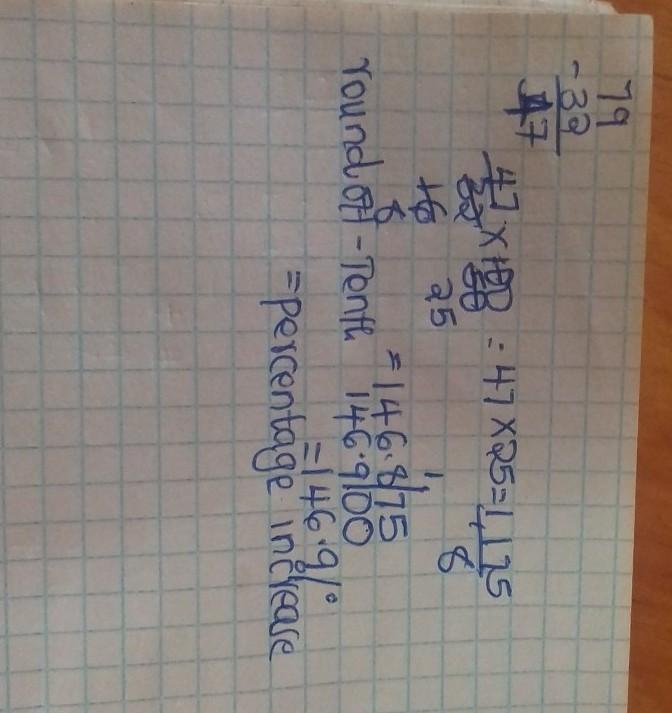 79
- 32
47
47/32 × 100 = 47 × 25 = 1,175/8
16 50
8 25
= 146.8/75
round off - Tenth 146.9/00
= 146.9%
= percentage increase